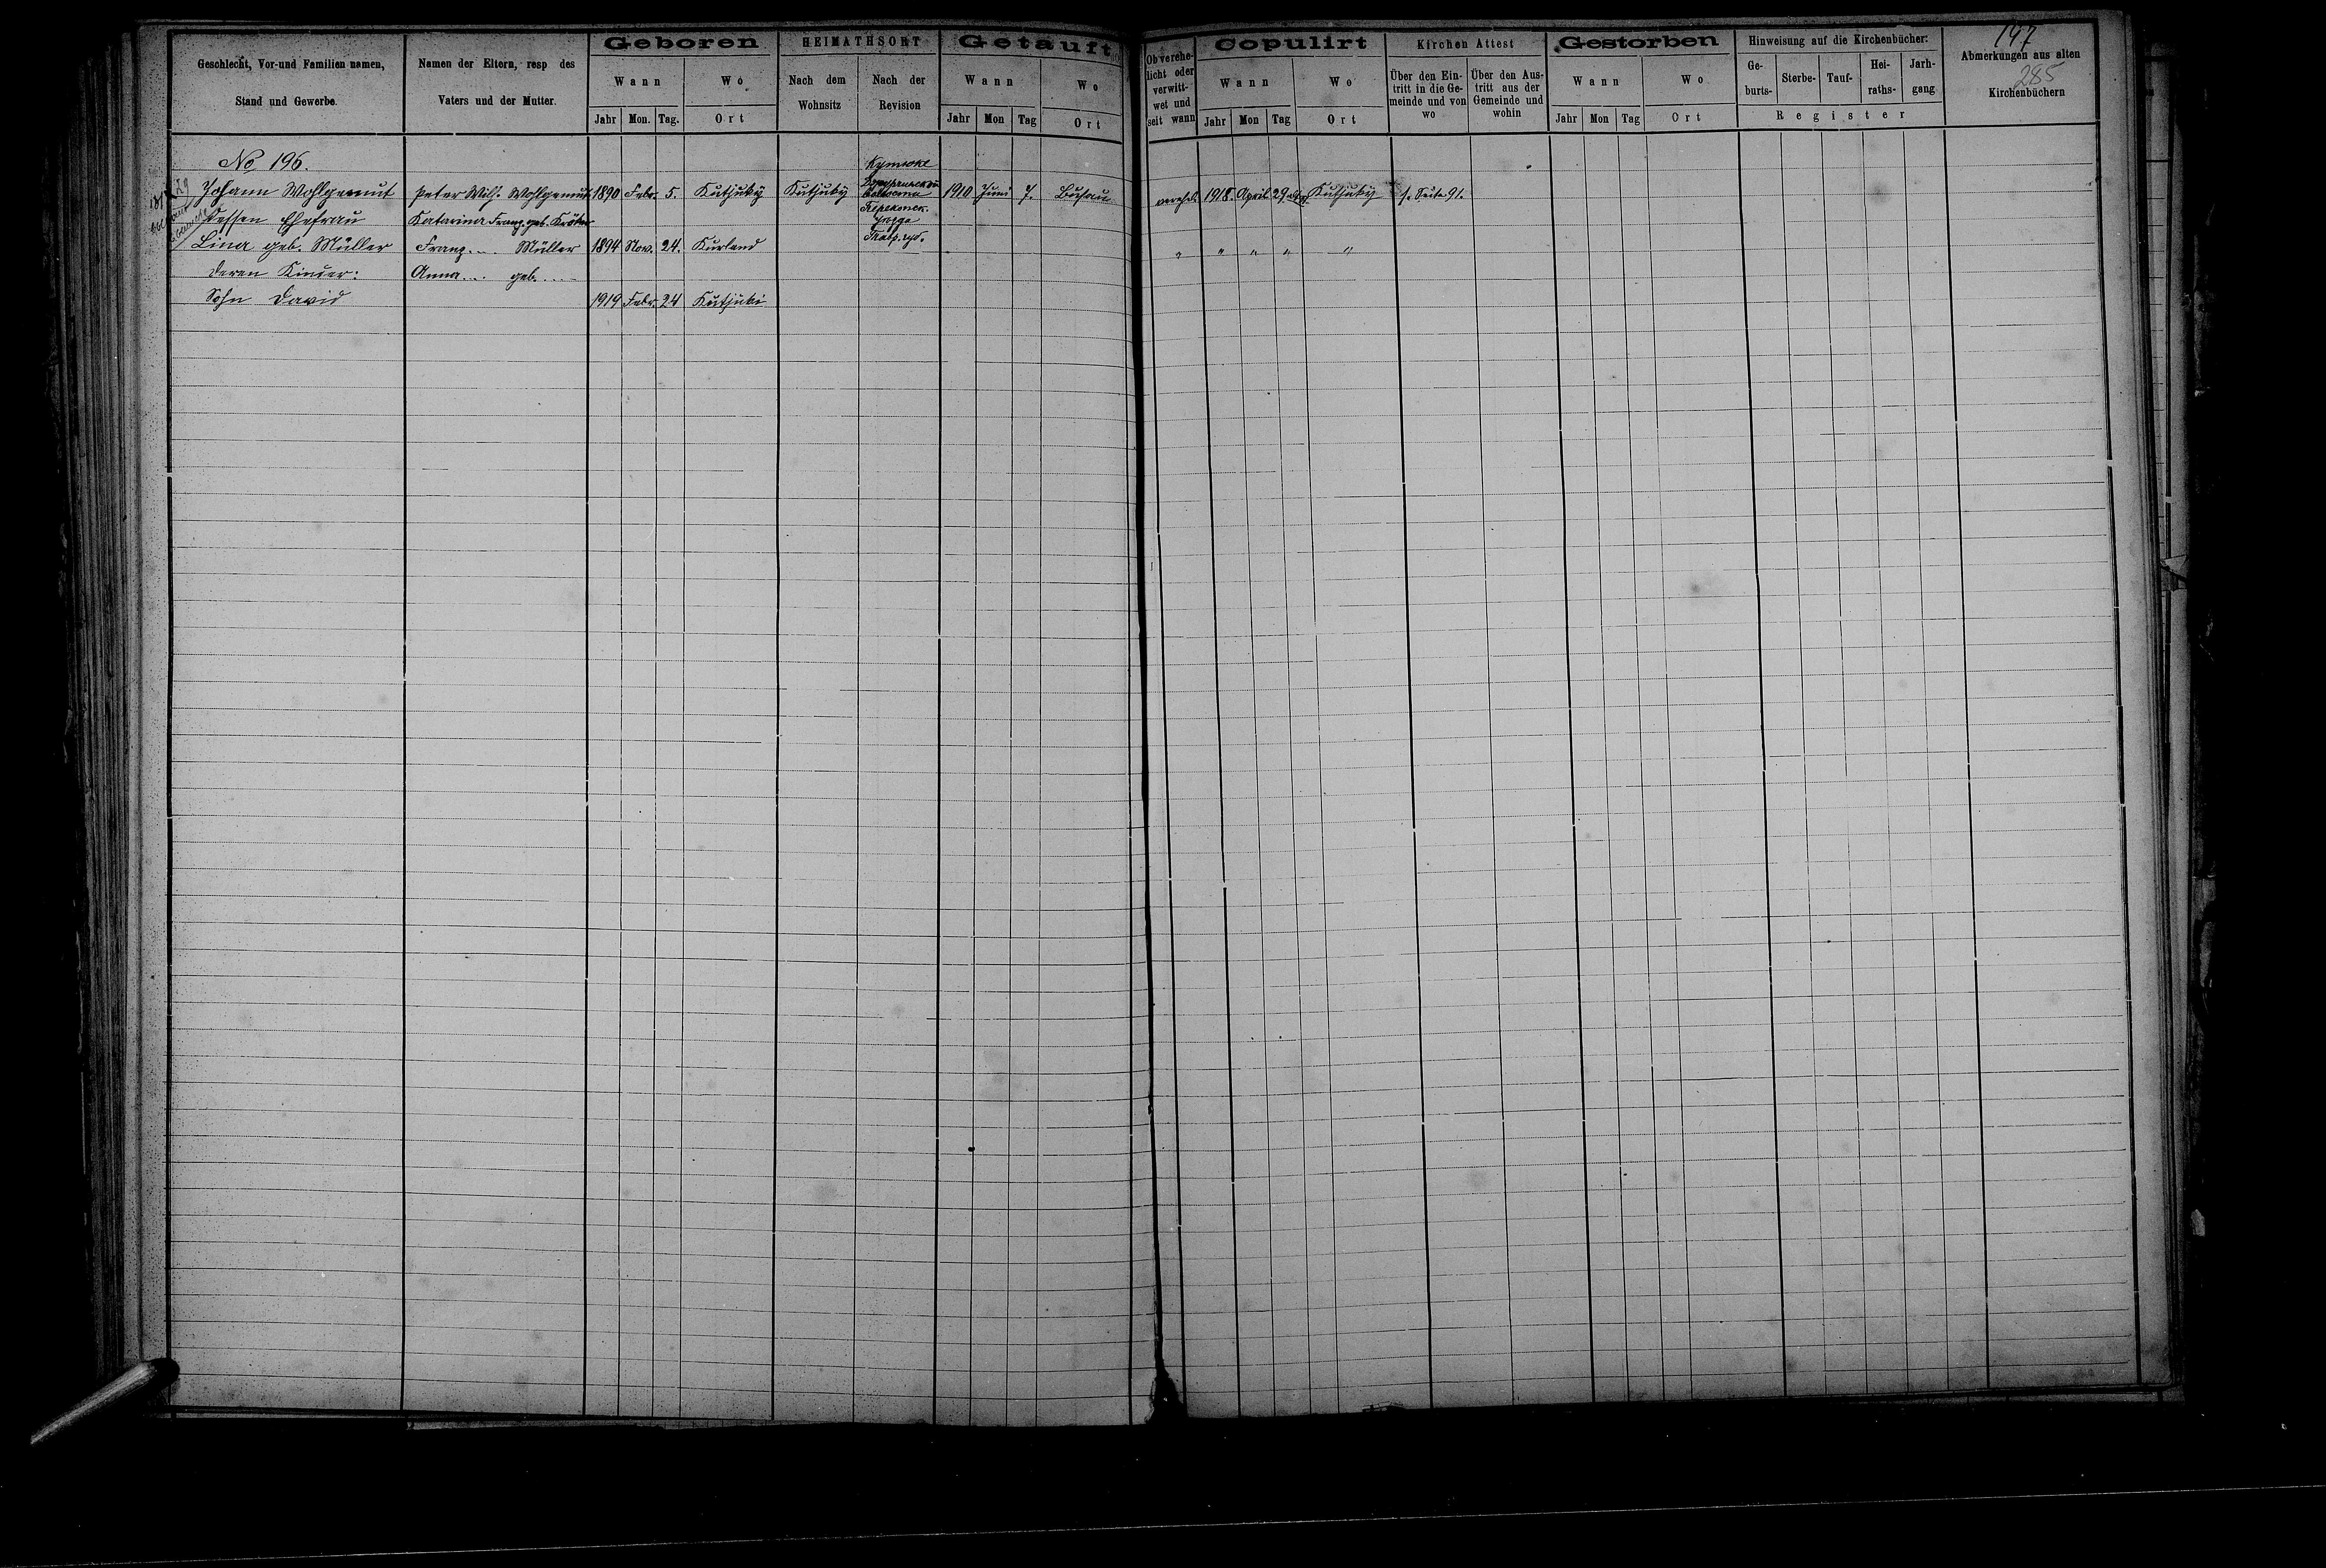 Geschlecht, Vor-und Familien namen,
Stand und Gewerbe.
Namen der Eltern, resp des
Vaters und der Mutter.
Geboren
Wann
Wo
Jahr Mon. Tag. Ort
HEIMATHSORT
Nach dem Wohnsitz
Nach der Revision
Getauft
Wann
Wo
Jahr Mon Tag Ort
Ob verehe-
licht oder
verwitt-
wet und
seit wann
Copulirt
Wann
Wo
Jahr Mon Tag Ort
Kirchen Attest
Über den Ein-
tritt in die Ge-
meinde und von
wo
Über den Aus-
tritt aus der
Gemeinde und
wohin
Gestorben
Wann
Wo
Jahr Mon Tag Ort
Hinweisung auf die Kirchenbücher:
Ge-
burts-
Sterbe-
Tauf-
Hei-
raths-
Jarh-
gang
Register
147
Abmerkungen aus alten
285
Kirchenbüchern
No 196.
Johann Wohlgemut Peter Wilh. Wohlgemut 1890 Febr. 5. Kutjuky Kutjuky 1910 Juni 7. Busau verehel. 1918. April 29. Kutjuky s. Seite 91.
Dessen Ehefrau Katarina Franz geb.
Lina geb. Müller Franz ... Müller 1894 Nov. 24. Kurland " " " " "
deren Kinder: Anna ... geb. ....
Sohn David 1919 Febr. 24 Kutjuki